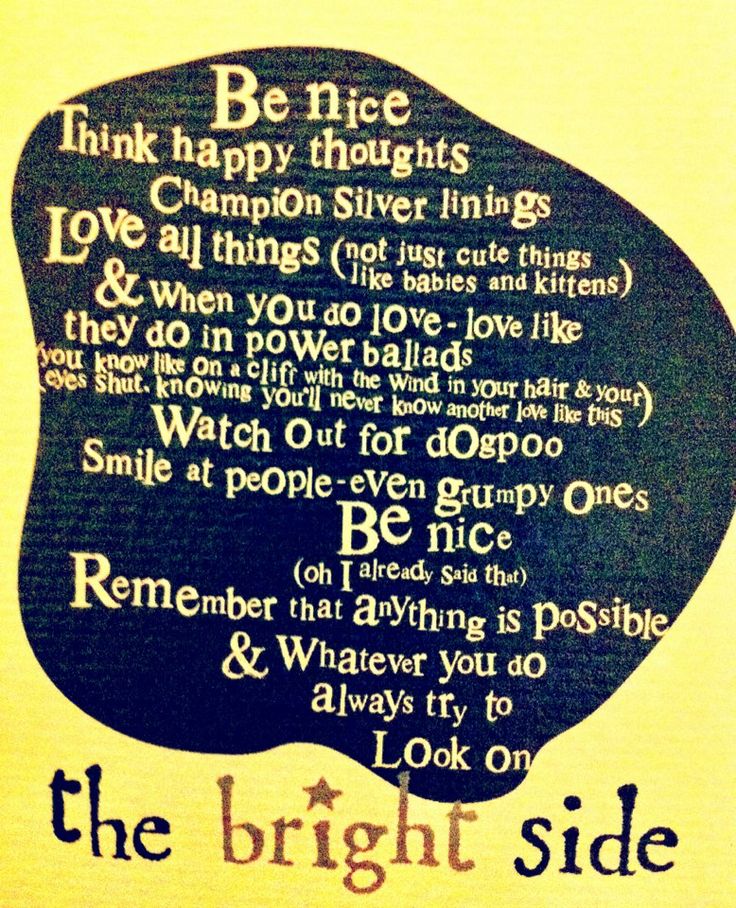 Be nice
Think happy thoughts
Champion Silver linings
Love all things (not just cute things
like babies and kittens)
& When you do love - love like
they do in power ballads
(you know like on a cliff with the wind in your hair & your
eyes shut. knowing you'll never know another love like this)
Watch Out for dogpoo
Smile at people - even grumpy ones
Be nice
(oh I already Said that)
Remember that anything is possible
& Whatever you do
always try to
Look on
the bright side